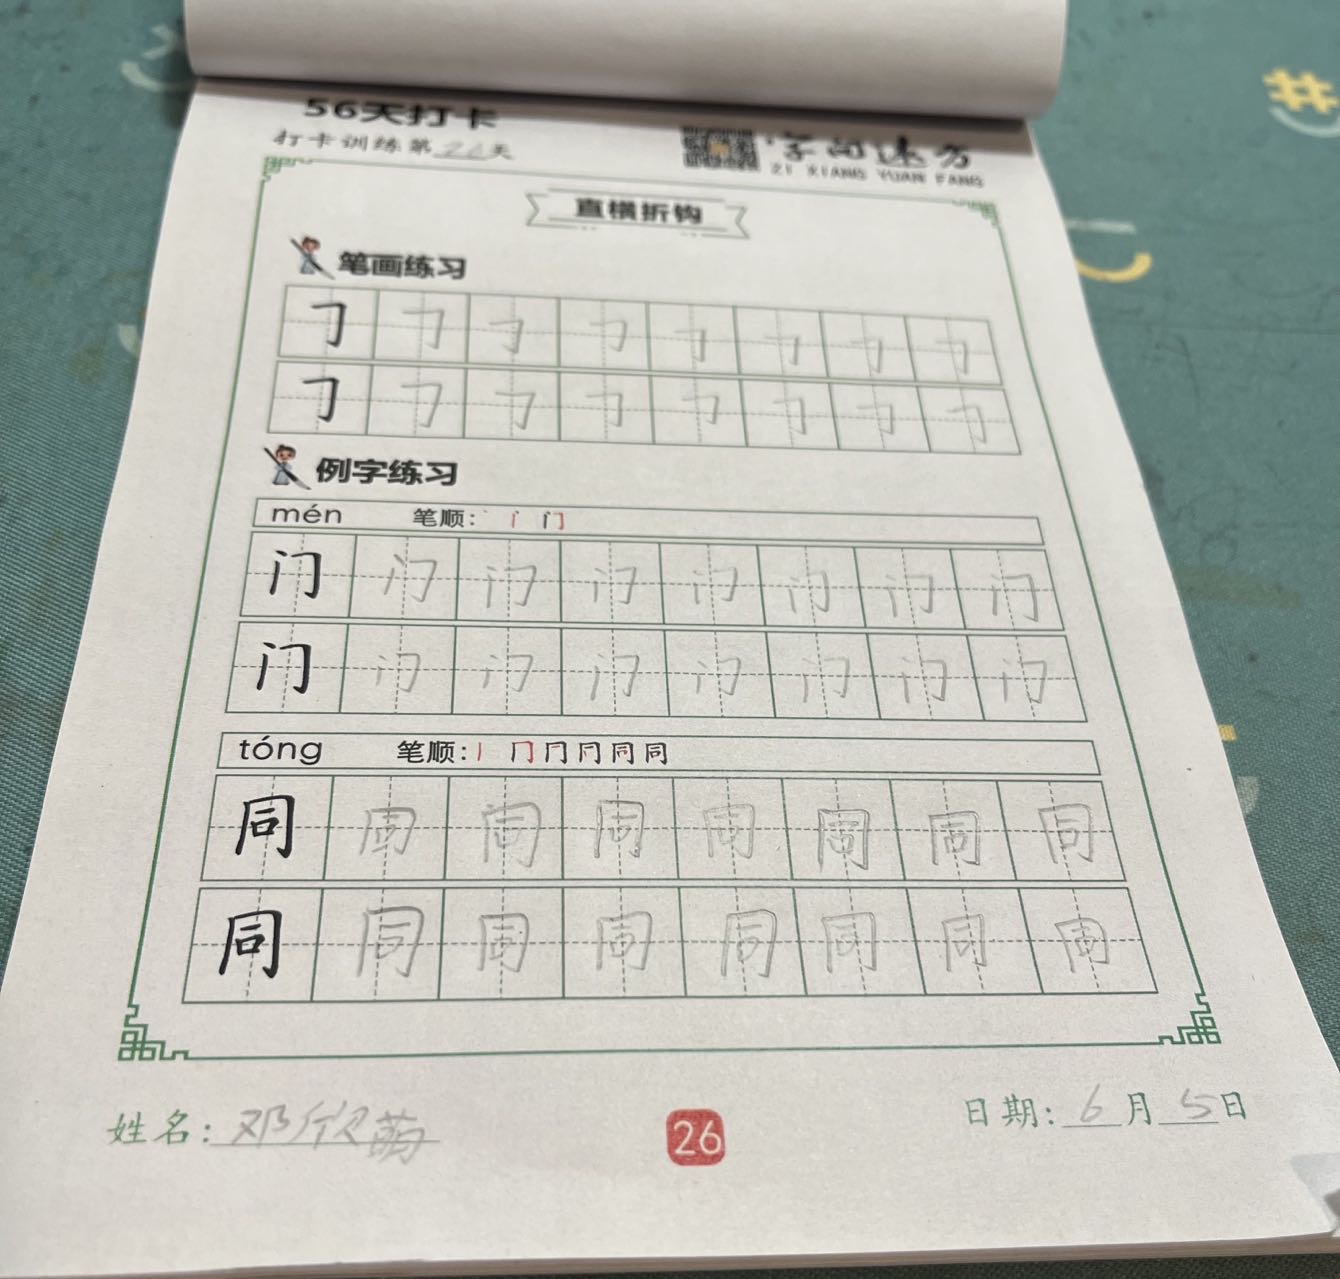 56天打卡
打卡训练第26天
字间远方
ZI XIANG YUAN FANG
直横折钩
笔画练习
𠃌 𠃌 𠃌 𠃌 𠃌 𠃌 𠃌 𠃌
𠃌 𠃌 𠃌 𠃌 𠃌 𠃌 𠃌 𠃌
例字练习
mén 笔顺: 丶 门
门 门 门 门 门 门 门 门
门 门 门 门 门 门 门 门
tóng 笔顺: 丨 冂 同 同
同 同 同 同 同 同 同 同
同 同 同 同 同 同 同 同
姓名: 邓欣萌
26
日期: 6月5日